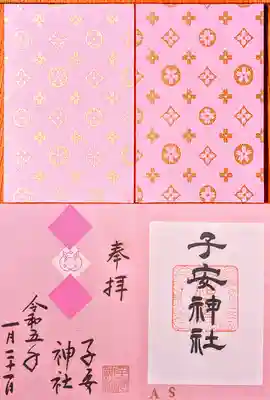 奉拝
子安
神社
令和五年
一月二十一日
子安神社
A S